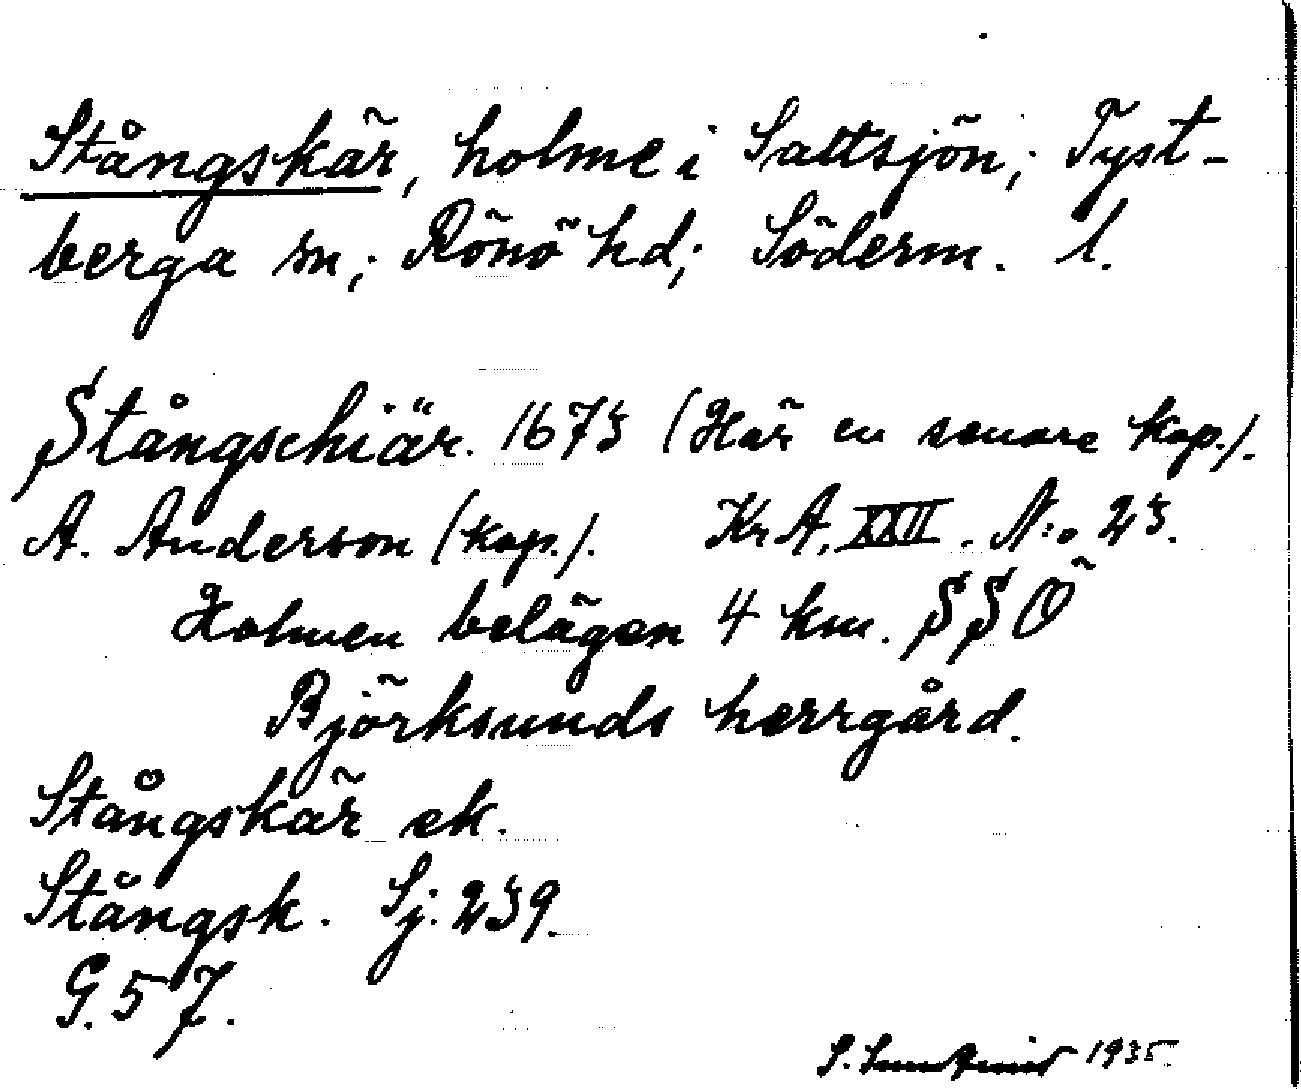 Stångskär, holme i Saltsjön; Tyst-
berga sn; Rönö hd; Söderm. l.
Stångschiär. 1673 (Här en senare kop.).
A. Anderson (kop.). Kr A, XXII. N:o 23.
Holmen belägen 4 km. SSÖ
Björksunds herrgård.
Stångskär ek.
Stångsk. Sj. 239.
G. 57.
S. 1935